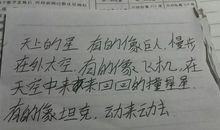 天上的星 有的像巨人，慢步
在外太空，有的像飞机，在
天空中来来回回的撞星星
有的像坦克，动来动去